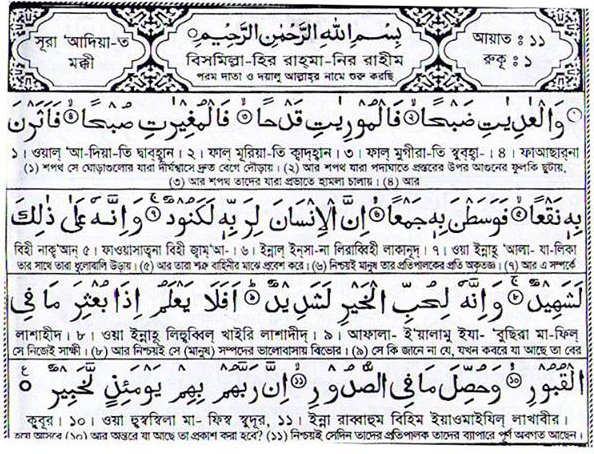 সূরা 'আদিয়া-ত
মক্কী
بِسْمِ اللّٰهِ الرَّحْمٰنِ الرَّحِيْمِ
বিসমিল্লা-হির রাহ্মা-নির রাহীম
পরম দাতা ও দয়ালু আল্লাহ্‌র নামে শুরু করছি
আয়াত : ১১
রুকূ : ১
وَالْعٰدِيٰتِ ضَبْحًا ۝ فَالْمُوْرِيٰتِ قَدْحًا ۝ فَالْمُغِيْرٰتِ صُبْحًا ۝ فَاَثَرْنَ
১। ওয়াল্ 'আ-দিয়া-তি দ্বাব্‌হান। ২। ফাল্ মূরিয়া-তি ক্বাদ্‌হান। ৩। ফাল্ মুগীরা-তি স্বুব্‌হা-। ৪। ফাআছার্‌না
(১) শপথ সে ঘোড়াগুলোর যারা দীর্ঘশ্বাসে দ্রুত বেগে দৌড়ায়। (২) আর শপথ যারা পদাঘাতে প্রস্তরের উপর আগুনের ফুলকি ছুটায়,
(৩) আর শপথ তাদের যারা প্রভাতে হামলা চালায়। (৪) আর
بِهٖ نَقْعًا ۝ فَوَسَطْنَ بِهٖ جَمْعًا ۝ اِنَّ الْاِنْسَانَ لِرَبِّهٖ لَكَنُوْدٌ ۝ وَاِنَّهٗ عَلٰى ذٰلِكَ
বিহী নাক্ব্‌'আন্ ৫। ফাওয়াসাত্বনা বিহী জ্বাম্‌'আ-। ৬। ইন্নাল্ ইন্‌সা-না লিরাব্বিহী লাকানূদ্। ৭। ওয়া ইন্নাহূ 'আলা- যা-লিকা
তার সাথে তারা ধুলোবালি উড়ায়। (৫) আর তারা শত্রু বাহিনীর মাঝে প্রবেশ করে। (৬) নিশ্চয়ই মানুষ তার প্রতিপালকের প্রতি অকৃতজ্ঞ। (৭) আর এ সম্পর্কে
لَشَهِيْدٌ ۝ وَاِنَّهٗ لِحُبِّ الْخَيْرِ لَشَدِيْدٌ ۝ اَفَلَا يَعْلَمُ اِذَا بُعْثِرَ مَا فِى
লাশাহীদ। ৮। ওয়া ইন্নাহূ লিহুব্বিল্ খাইরি লাশাদীদ্। ৯। আফালা- ই'য়ালামু ইযা- 'বুছিরা মা-ফিল্
সে নিজেই সাক্ষী। (৮) আর নিশ্চয়ই সে (মানুষ) সম্পদের ভালোবাসায় বিভোর। (৯) সে কি জানে না যে, যখন কবরে যা আছে তা বের
الْقُبُوْرِ ۝ وَحُصِّلَ مَا فِى الصُّدُوْرِ ۝ اِنَّ رَبَّهُمْ بِهِمْ يَوْمَئِذٍ لَّخَبِيْرٌ ۝
কুবূর। ১০। ওয়া হুস্বস্বিলা মা- ফিস্ব স্বুদূর, ১১। ইন্না রাব্বাহুম বিহিম ইয়াওমাইযিল্ লাখাবীর।
হয়ে আসবে (১০) আর অন্তরে যা আছে তা প্রকাশ করা হবে? (১১) নিশ্চয়ই সেদিন তাদের প্রতিপালক তাদের ব্যাপারে পূর্ণ অবগত আছেন।